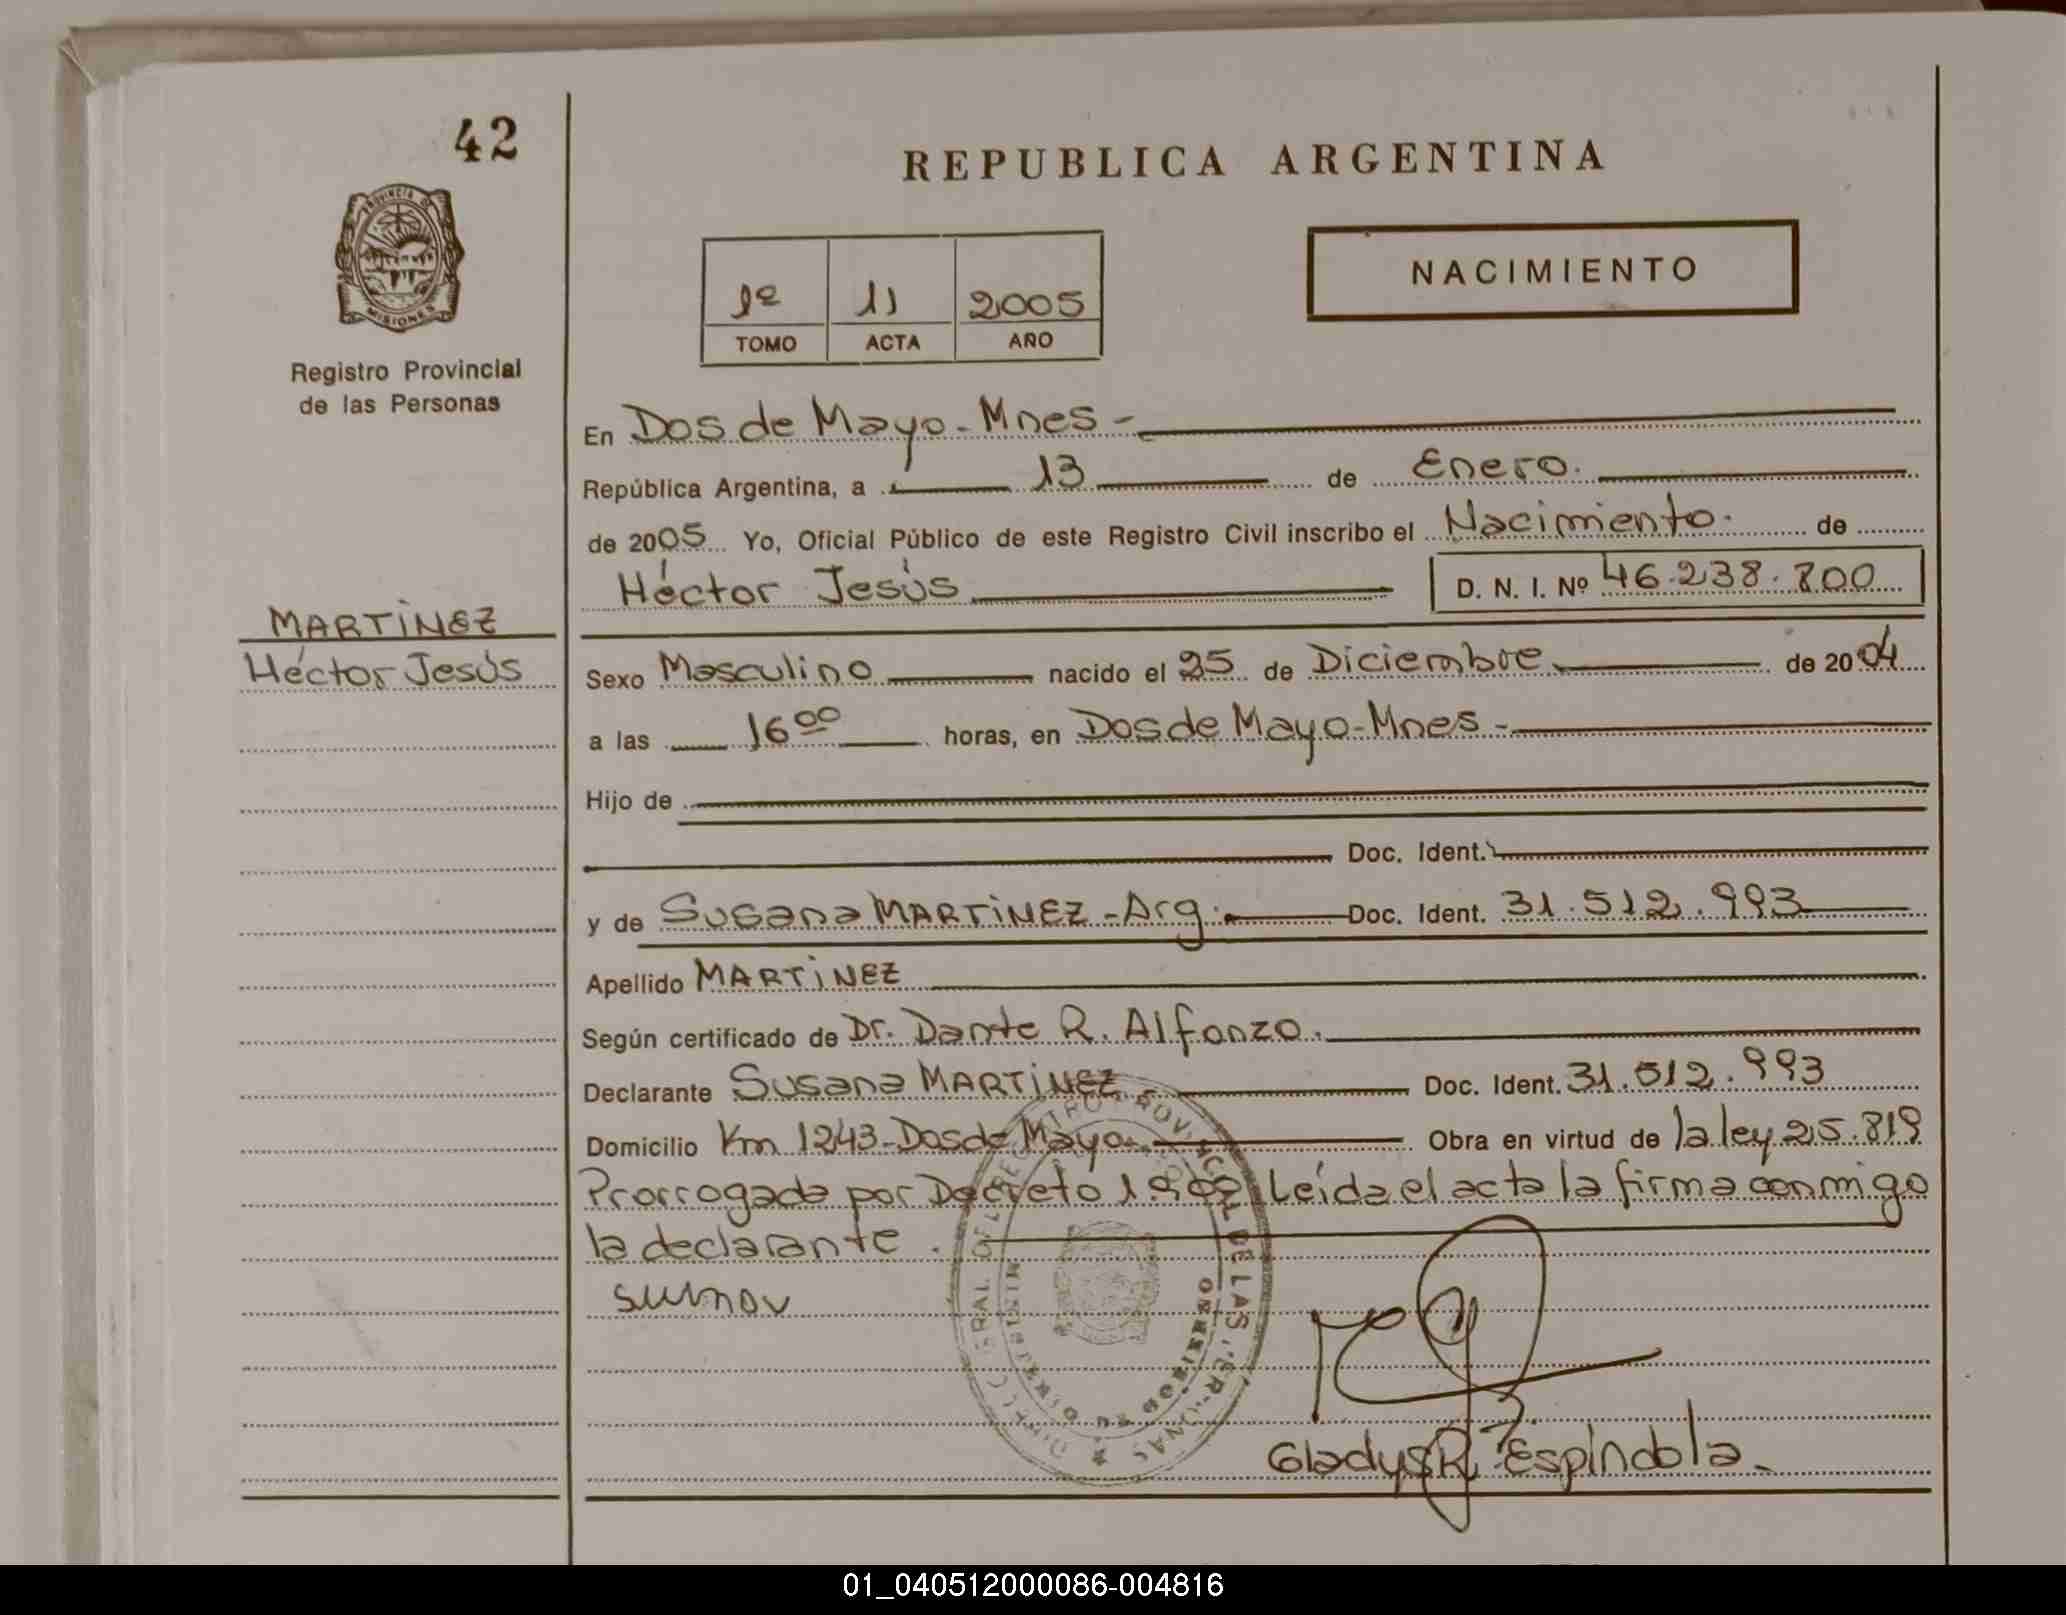 42
REPUBLICA ARGENTINA
PROVINCIA DE
MISIONES
NACIMIENTO
1º 11 2005
TOMO ACTA AÑO
Registro Provincial
de las Personas
En Dos de Mayo - Mnes -
República Argentina, a 13 de Enero.
de 2005 Yo, Oficial Público de este Registro Civil inscribo el Nacimiento. de
Héctor Jesús D. N. I. Nº 46.238.800
MARTINEZ
Héctor Jesús
Sexo Masculino nacido el 25 de Diciembre de 2004
a las 16 00 horas, en Dos de Mayo - Mnes -
Hijo de
Doc. Ident.
y de Susana MARTINEZ - Arg. Doc. Ident. 31.512.993
Apellido MARTINEZ
Según certificado de Dr. Dante R. Alfonzo.
Declarante Susana MARTINEZ - Doc. Ident. 31.512.993
Domicilio Km 1243 - Dos de Mayo. Obra en virtud de la ley 25.819
Prorrogada por Decreto Leída el acta la firma conmigo
la declarante.
Gladys R. Espíndola.
01_040512000086-004816